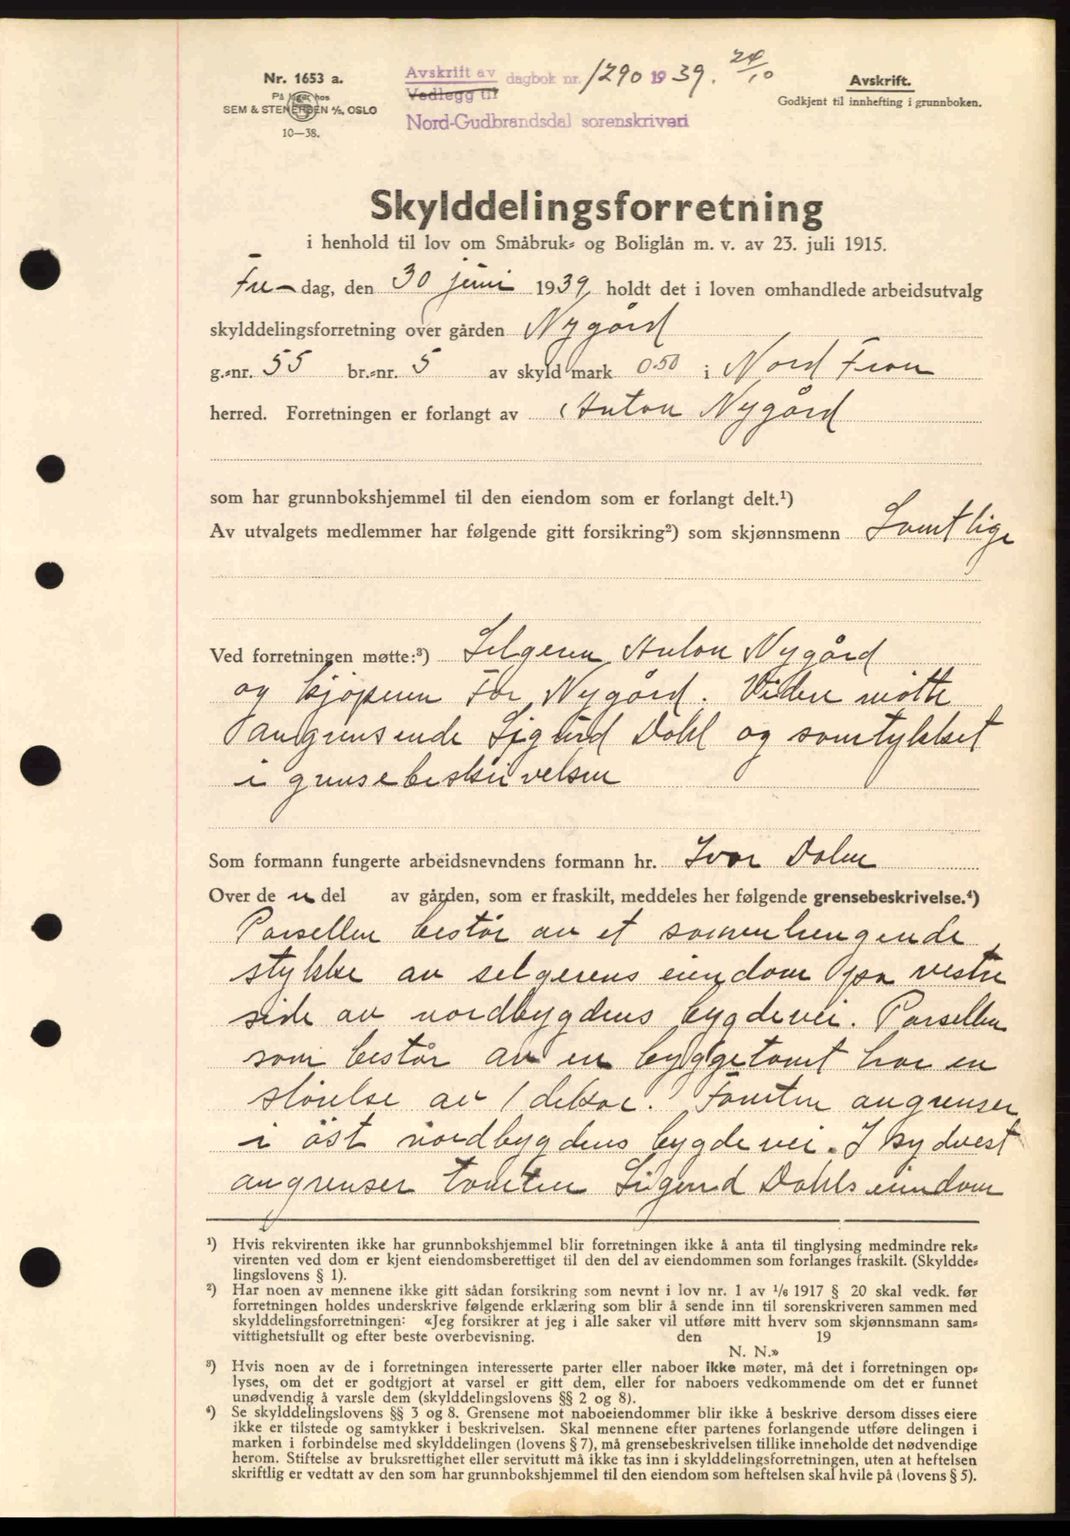 Nr. 1653 a.
På lager hos
SEM & STENERSEN A/S, OSLO
10—38.
Avskrift av dagbok nr. 1290 1939. 24/10
Vedlegg til
Nord-Gudbrandsdal sorenskriveri
Avskrift.
Godkjent til innhefting i grunnboken.
Skylddelingsforretning
i henhold til lov om Småbruk- og Boliglån m. v. av 23. juli 1915.
Fre- dag, den 30 juni 1939 holdt det i loven omhandlede arbeidsutvalg
skylddelingsforretning over gården Nygård
g.-nr. 55 br.-nr. 5 av skyld mark 0.50 i Nord Fron
herred. Forretningen er forlangt av Anton Nygård
som har grunnbokshjemmel til den eiendom som er forlangt delt.¹)
Av utvalgets medlemmer har følgende gitt forsikring²) som skjønnsmenn Samtlige
Ved forretningen møtte:³) Selgeren Anton Nygård
og kjøperen Tor Nygård. Videre møtte
angrensende Sigurd Dahl og samtykket
i grensebeskrivelsen
Som formann fungerte arbeidsnevndens formann hr. Ivar Dalen
Over den del av gården, som er fraskilt, meddeles her følgende grensebeskrivelse.⁴)
Parsellen består av et sammenhengende
stykke av selgerens eiendom på vestre
side av nordbygdens bygdevei. Parsellen
som består av en byggetomt har en
størelse av 1 dekar. Tomten angrenser
i øst nordbygdens bygdevei. I sydvest
angrenser tomten Sigurd Dahls eiendom
¹) Hvis rekvirenten ikke har grunnbokshjemmel blir forretningen ikke å anta til tinglysing medmindre rek-
virenten ved dom er kjent eiendomsberettiget til den del av eiendommen som forlanges fraskilt. (Skyldde-
lingslovens § 1).
²) Har noen av mennene ikke gitt sådan forsikring som nevnt i lov nr. 1 av 1/6 1917 § 20 skal vedk. før
forretningen holdes underskrive følgende erklæring som blir å sende inn til sorenskriveren sammen med
skylddelingsforretningen: «Jeg forsikrer at jeg i alle saker vil utføre mitt hverv som skjønnsmann sam-
vittighetsfullt og efter beste overbevisning. den 19
N. N.»
³) Hvis noen av de i forretningen interesserte parter eller naboer ikke møter, må det i forretningen op-
lyses, om det er godtgjort at varsel er gitt dem, eller for naboers vedkommende om det er funnet
unødvendig å varsle dem (skylddelingslovens §§ 2 og 8).
⁴) Se skylddelingslovens §§ 3 og 8. Grensene mot naboeiendommer blir ikke å beskrive dersom disses eiere
ikke er tilstede og samtykker i beskrivelsen. Skal mennene efter partenes forlangende utføre delingen i
marken i forbindelse med skylddelingen (lovens § 7), må grensebeskrivelsen tillike inneholde det nødvendige
herom. Stiftelse av bruksrettighet eller servitutt må ikke tas inn i skylddelingsforretningen, uten at heftelsen
skriftlig er vedtatt av den som har grunnbokshjemmel til den eiendom som heftelsen skal hvile på (lovens § 5).